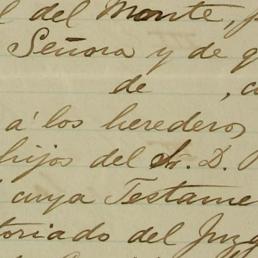 l del Monte, p
Señora y de q
de , c
a' los herederos
hijos del Sr. D.
cuya Testame
toriado del Juzg